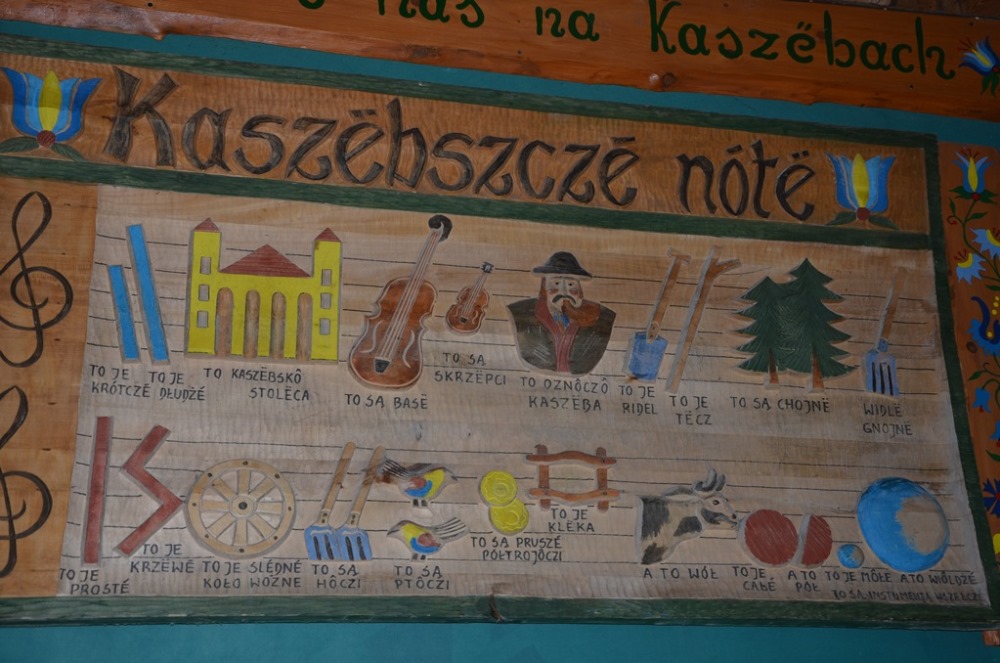 nas na Kaszëbach
Kaszëbszczé nótë
TO JE KRÓTCZÉ
TO JE DŁUDŻÉ
TO KASZËBSKÔ STOLËCA
TO SĄ BASË
TO SĄ SKRZËPCI
TO OZNÔCZÔ KASZËBA
TO JE RIDEL
TO JE TËCZ
TO SĄ CHOJNË
WIDŁË GNOJNÉ
TO JE PROSTÉ
TO JE KRZËWÉ
TO JE SLÉDNÉ KOŁO WÓZNÉ
TO SĄ HÔCZI
TO SĄ PTÔCZI
TO SĄ PRUSZÉ PÓŁTROJÔCZI
TO JE KLËKA
A TO WÓŁ
TO JE CAŁÉ
A TO PÓŁ
TO JE MÔŁÉ
A TO WIÔLDŻÉ